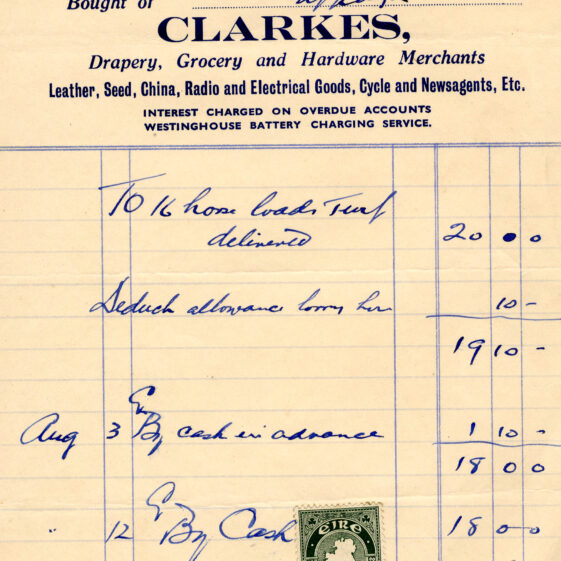 Bought of
CLARKES,
Drapery, Grocery and Hardware Merchants
Leather, Seed, China, Radio and Electrical Goods, Cycle and Newsagents, Etc.
INTEREST CHARGED ON OVERDUE ACCOUNTS
WESTINGHOUSE BATTERY CHARGING SERVICE.
To 16 horse loads Turf
delivered 20 0 0
Deduct allowance lorry hire 10 -
19 10 -
Aug 3 By cash in advance 1 10 -
18 0 0
" 12 By Cash 18 0 -
EIRE